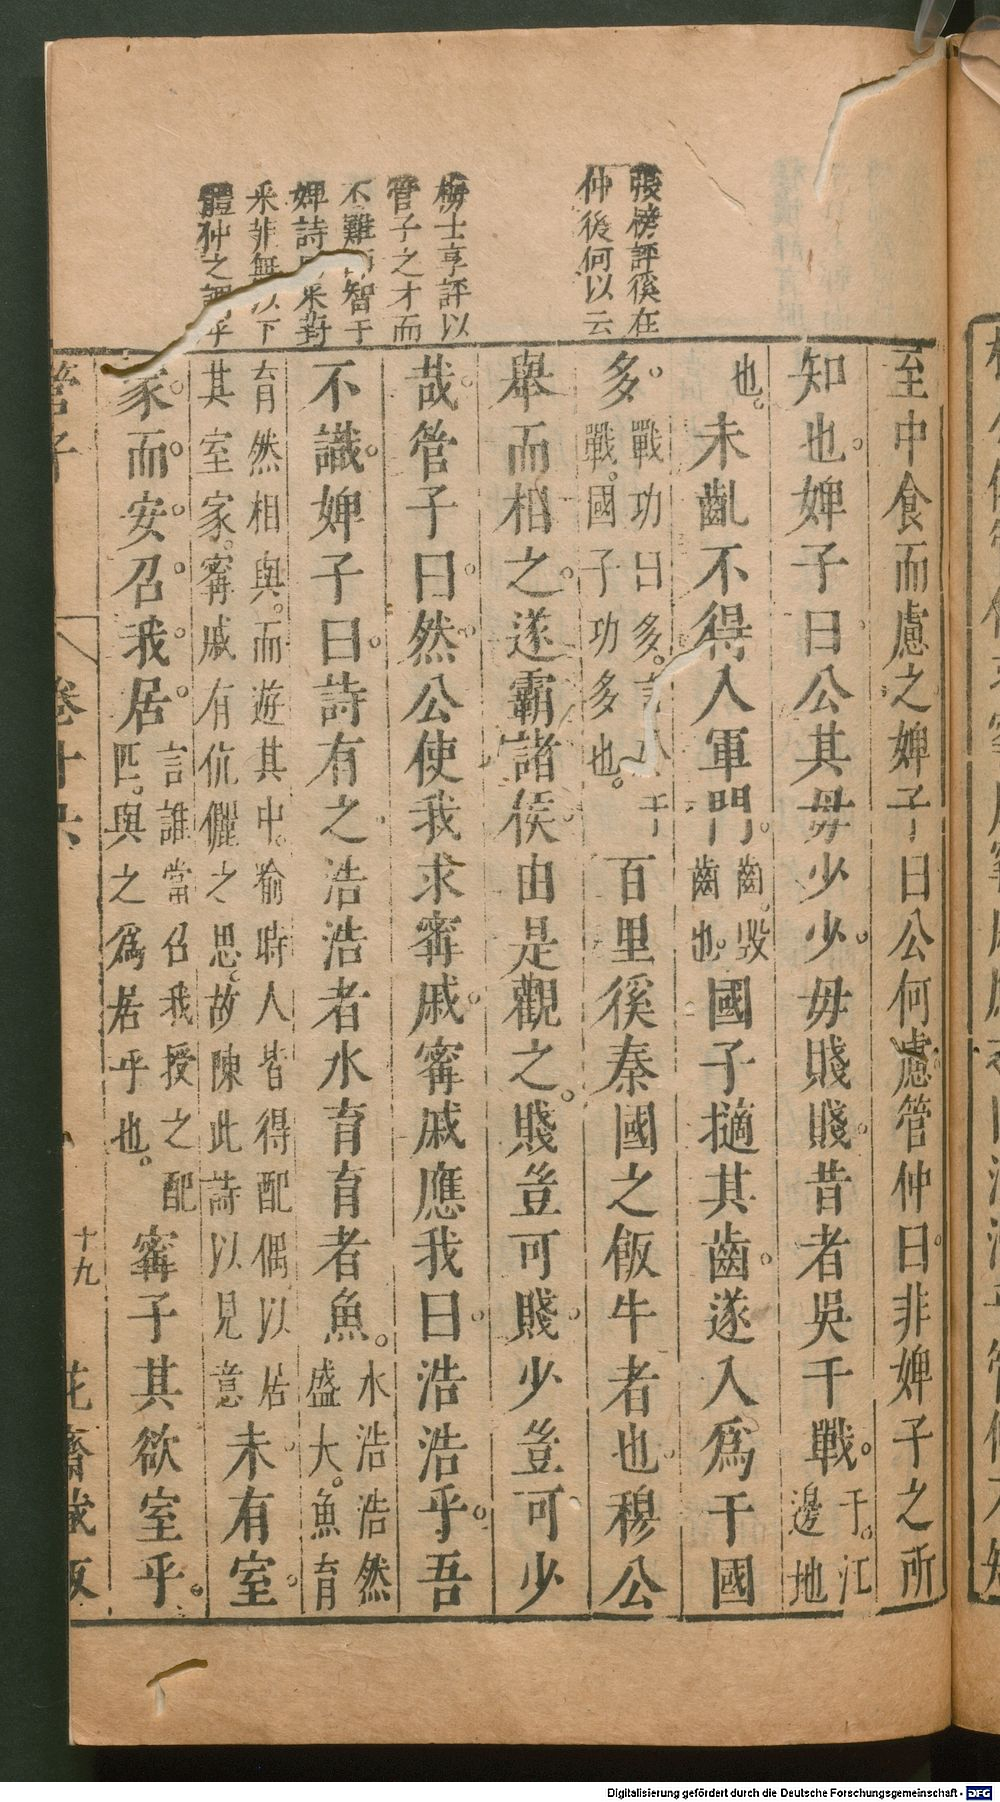 張榜評徯在
仲後何以云
梅士享評以
管子之才而
不難 智于
婢詩 來對
釆非無以下
體仲之謂乎
至中食而慮之婢子曰公何慮管仲曰非婢子之所
知也婢子曰公其毋少少毋賤賤昔者吳干戰于江邊地
也未齓不得入軍門齒毀齒也國子擿其齒遂入爲干國
多戰功曰多言於干戰國子功多也百里徯秦國之飯牛者也穆公
舉而相之遂霸諸侯由是觀之賤豈可賤少豈可少
哉管子曰然公使我求甯戚甯戚應我曰浩浩乎吾
不識婢子曰詩有之浩浩者水育育者魚水浩浩然盛大魚育
育然相與而遊其中喻時人皆得配偶以居其室家甯戚有伉儷之思故陳此詩以見意未有室
家而安召我居言誰當召我授之配匹與之爲居乎也甯子其欲室乎
管子
卷十六
十九
花齋藏板
Digitalisierung gefördert durch die Deutsche Forschungsgemeinschaft - DFG